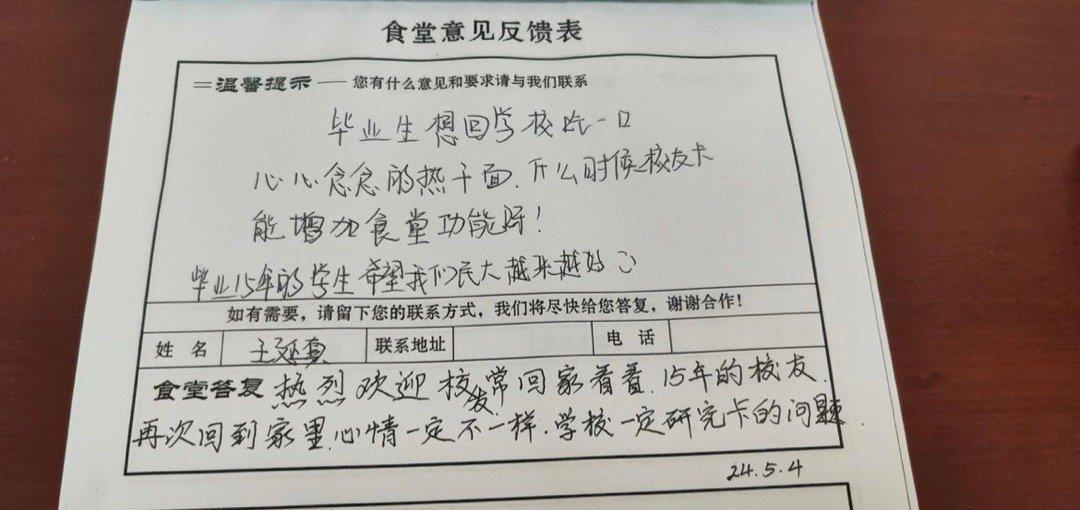 食堂意见反馈表
温馨提示——您有什么意见和要求请与我们联系
毕业生想回学校吃一口
心心念念的热干面.什么时候校友卡
能增加食堂功能呀！
毕业15年的学生希望我们民大越来越好
如有需要，请留下您的联系方式，我们将尽快给您答复，谢谢合作！
姓 名 王 联系地址 电 话
食堂答复 热烈欢迎校友常回家看看.15年的校友.
再次回到家里.心情一定不一样.学校一定研究卡的问题.
24.5.4